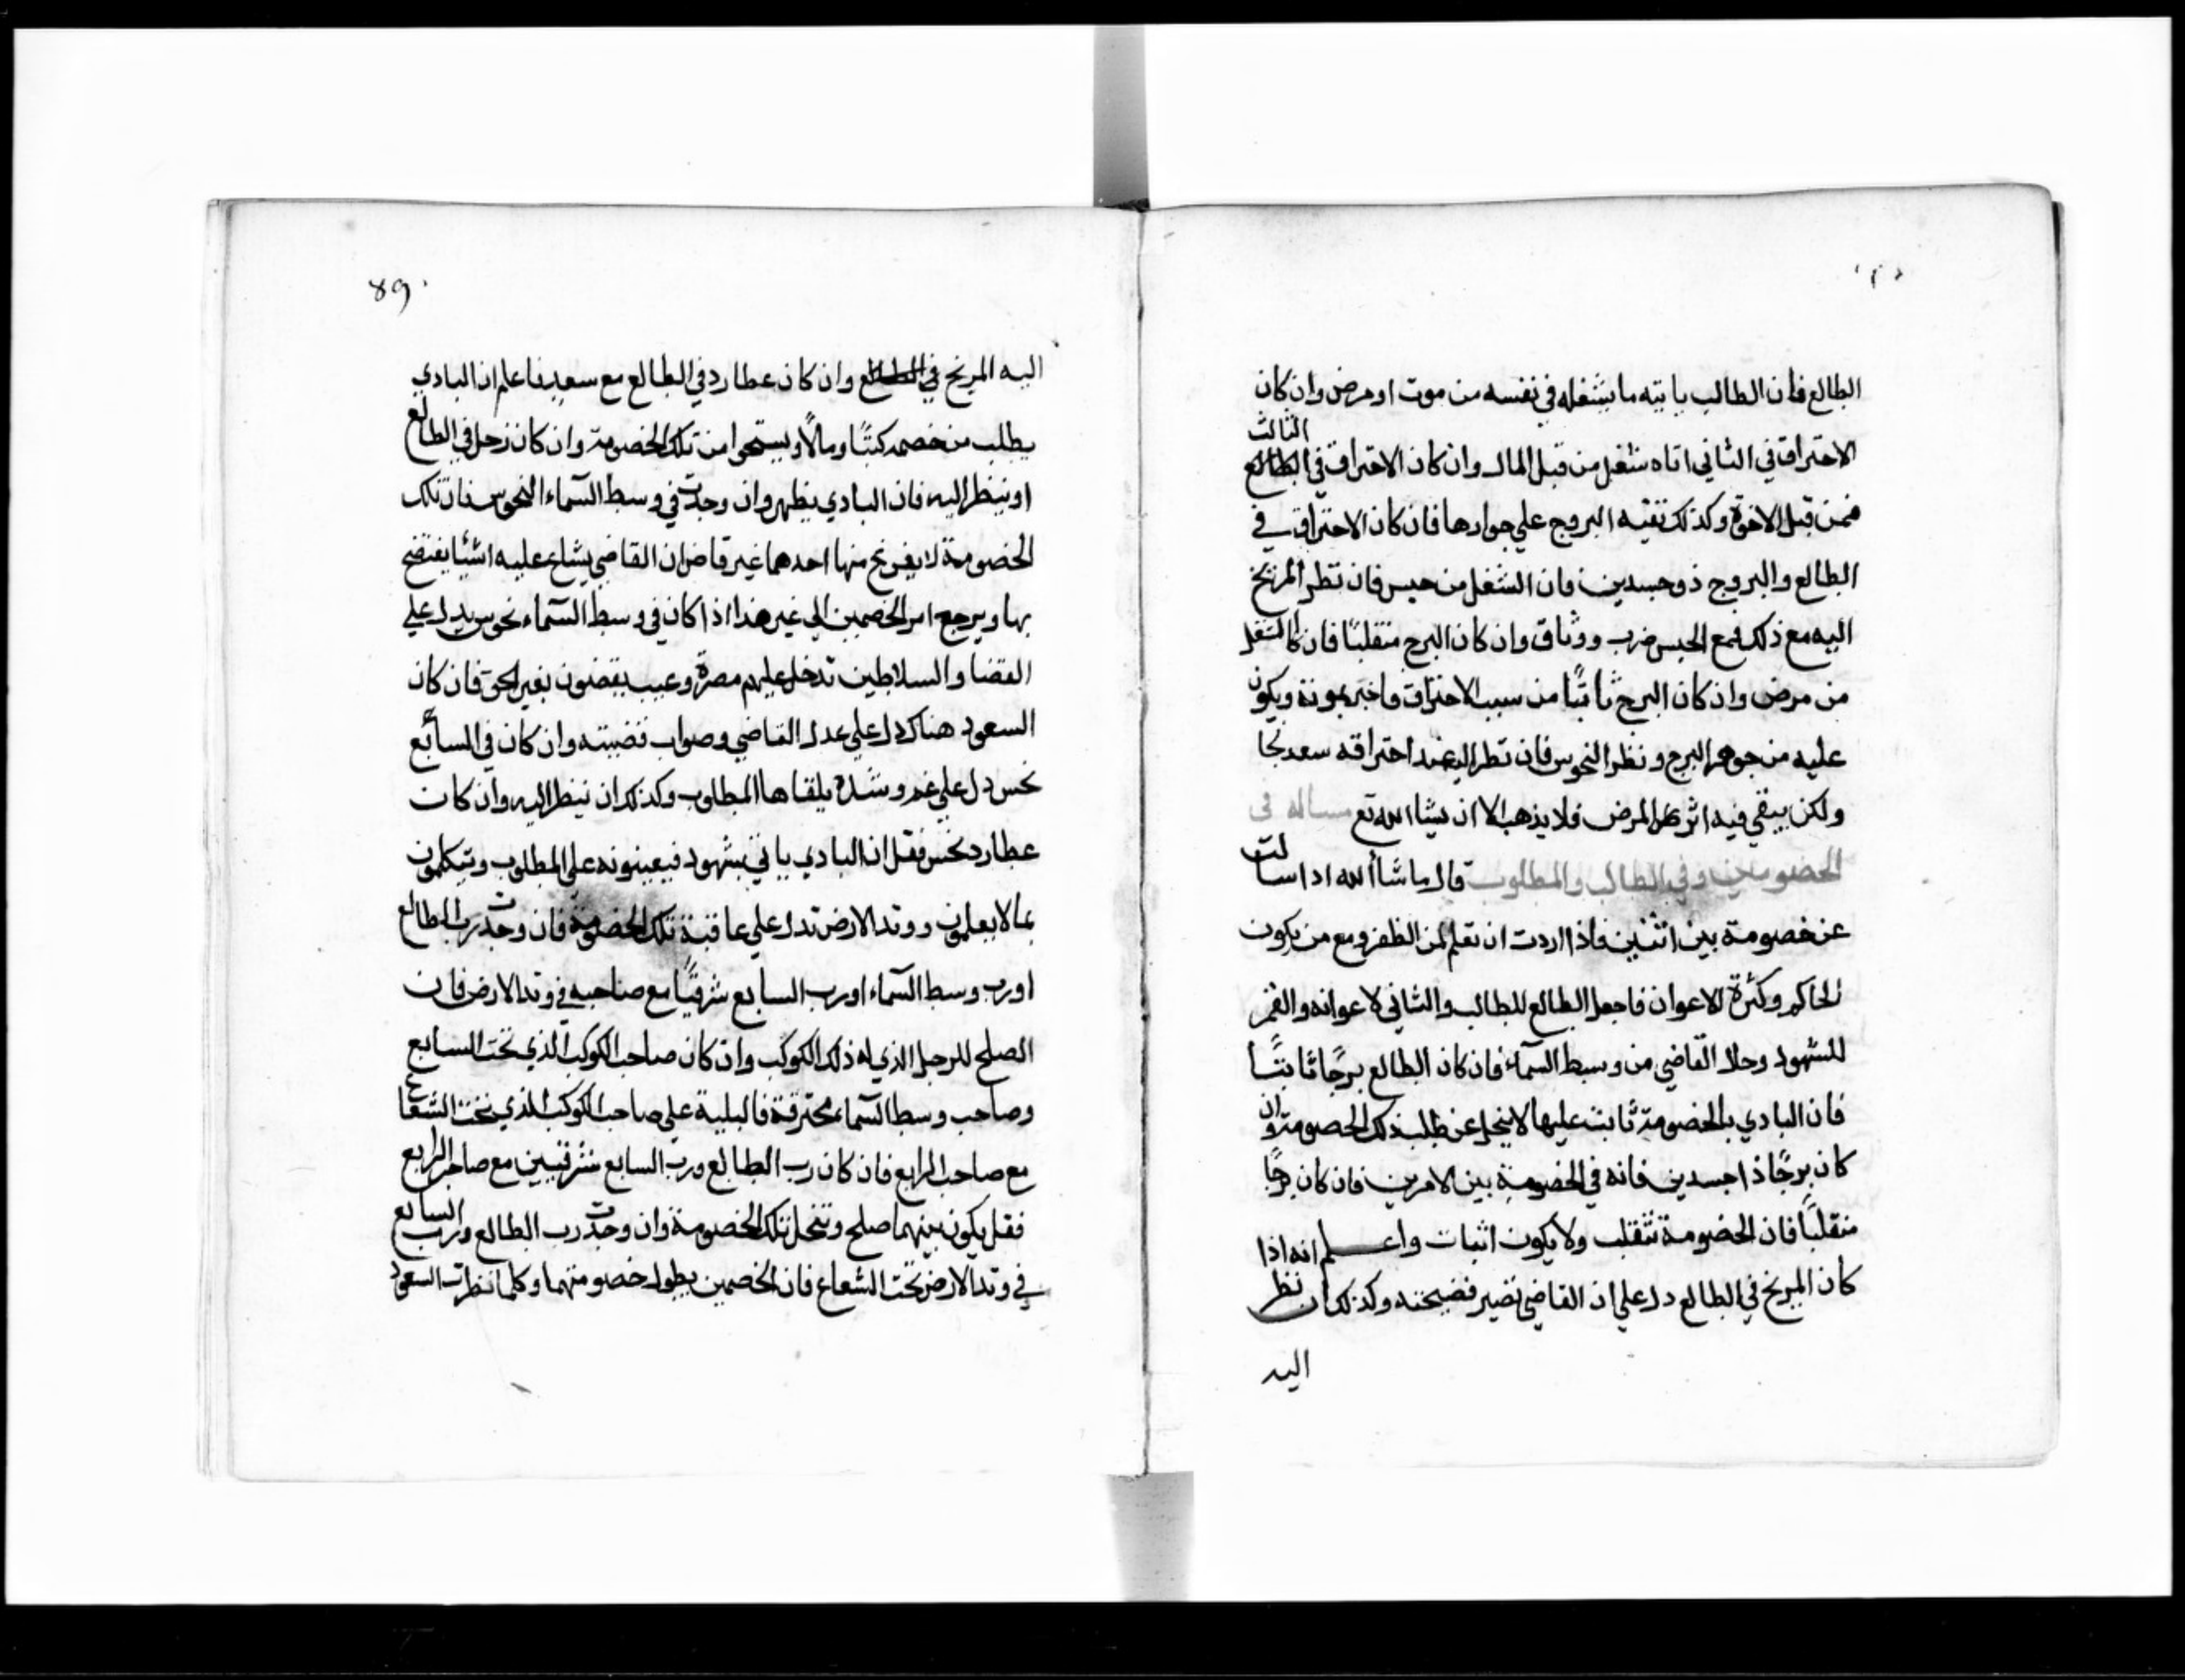 الطالع فان الطالب ياتيه ما يشغله في نفسه من موت او مرض وان كان
الثالث
الاحتراق في الثاني اتاه شغل من قبل المال وان كان الاحتراق في الطالع
فمن قبل الاخوة وكذلك تفتيه البروج علي جوارها فان كان الاحتراق في
الطالع والبروج ذو جسدين فان الشغل من حبس فان نظر المريخ
اليه مع ذلك فمع الحبس ضرب ووثاق وان كان البرج منقلبًا فان كان الشغل
من مرض وان كان البرج ثابتًا من سبب الاحتراق فاخبر بموته ويكون
عليه من جوهر البرج ونظر النحوس فان نظر اليه عند احتراقه سعد نجا
ولكن يبقي فيه اثر المرض فلا يذهب الا ان يشا الله تع مساله في
الخصومين وفي الطالب والمطلوب قال ما شاالله اذا سالت
عن خصومة بين اثنين فاذا اردت ان تعلم لمن الظفر ومع من يكون
الحاكم وكثرة الاعوان فاجعل الطالع للطالب والثاني لاعوانه والقمر
للشهود وحلا القاضي من وسط السماء فان كان الطالع برجًا ثابتًا
فان البادي بالخصومة ثابت عليها لا ينحل عن طلب ذلك الخصومة وان
كان برجًا ذا جسدين فانه في الخصومة بين الامرين فان كان برجًا
منقلبًا فان الخصومة تنقلب ولا يكون اثبات واعلم انه اذا
كان المريخ في الطالع دل علي ان القاضي تصير فضيحته وكذلك ان نظر
اليه
89
اليه المريخ في الطالع وان كان عطارد في الطالع مع سعيدنا علم ان البادي
يطلب من خصمه كتبًا ومالًا ويستحوا من تلك الخصومة وان كان زحل في الطالع
او ينظر اليه فان البادي يظهر وان وجدت في وسط السماء النحوس فان تلك
الخصومة لا يفرنح منها احدهما غير قاض ان القاضي يشاع عليه اشيا يفتضح
بها ويرجع امر الخصمين الي غير هذا اذا كان في وسط السماء نحوس يدل علي
القضا والسلاطين تدخل عليهم مضرة وعيب يقضون بغير الحق فان كان
السعود هناك دل علي عدل القاضي وصواب قضيته وان كان في السابع
نحس دل علي غم وشدة يلقاها المطلوب وكذلك ان ينظر اليه وان كان
عطارد نحس فقل ان البادي ياتي بشهود فيعينونه علي المطلوب ويتكلمون
بما لا يعلمون ووتد الارض تدل علي عاقبة تلك الخصومة فان وجدت رب الطالع
او رب وسط السماء او رب السابع شرقيًا مع صاحبه في وتد الارض فان
الصلح للرجل الذي له ذلك الكوكب وان كان صاحب الكوكب الذي تحت السابع
وصاحب وسط السماء محترقة فالبلية علي صاحب الكوكب الذي تحت الشعاع
مع صاحب الرابع فان كان رب الطالع ورب السابع شرقيين مع صاحب الرابع
فقل يكون بينهما صلح وتنحل تلك الخصومة وان وجدت رب الطالع ورب السابع
في وتد الارض تحت الشعاع فان الخصمين يطول خصومتهما وكلما نظرت السعود